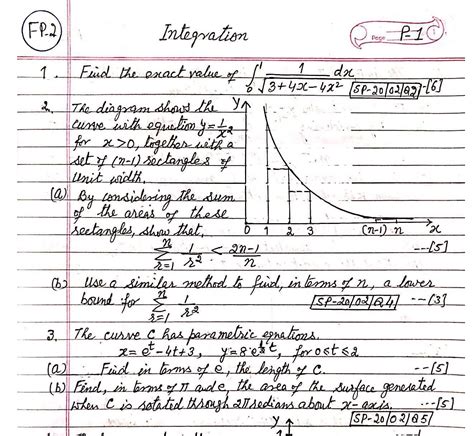 FP.2
Integration
Page P-1
1. Find the exact value of ∫₀¹ 1/√(3+4x-4x²) dx [SP-20/02/Q2] -[6]
2. The diagram shows the
curve with equation y=1/x²
for x>0, together with a
set of (n-1) rectangles of
unit width.
(a) By considering the sum
of the areas of these
rectangles, show that,
∑_{r=1}^{n} 1/r² < (2n-1)/n ---[5]
y
0 1 2 3 (n-1) n x
(b) Use a similar method to find, in terms of n, a lower
bound for ∑_{r=1}^{n} 1/r² [SP-20/02/Q4] ---[3]
3. The curve C has parametric equations.
x=e^t-4t+3, y=8e^{½t}, for 0≤t≤2
(a) Find in terms of e, the length of C. ---[5]
(b) Find, in terms of π and e, the area of the surface generated
when C is rotated through 2π radians about x-axis. ---[5]
[SP-20/02/Q5]
y